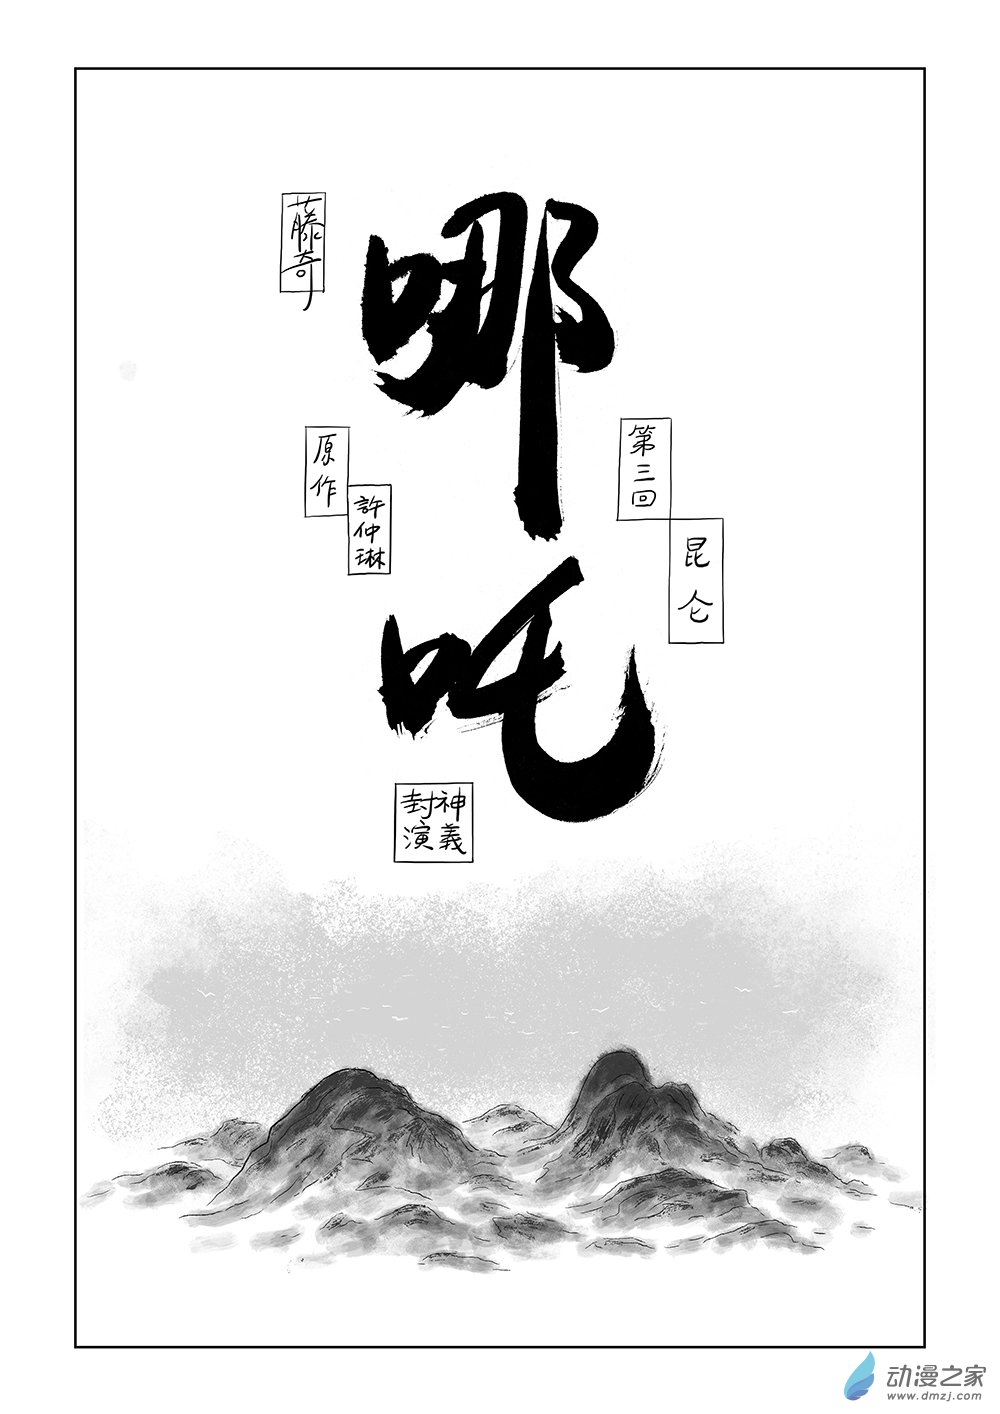 哪吒
第三回
昆仑
藤奇
原作
許仲琳
封神
演義
动漫之家
www.dmzj.com